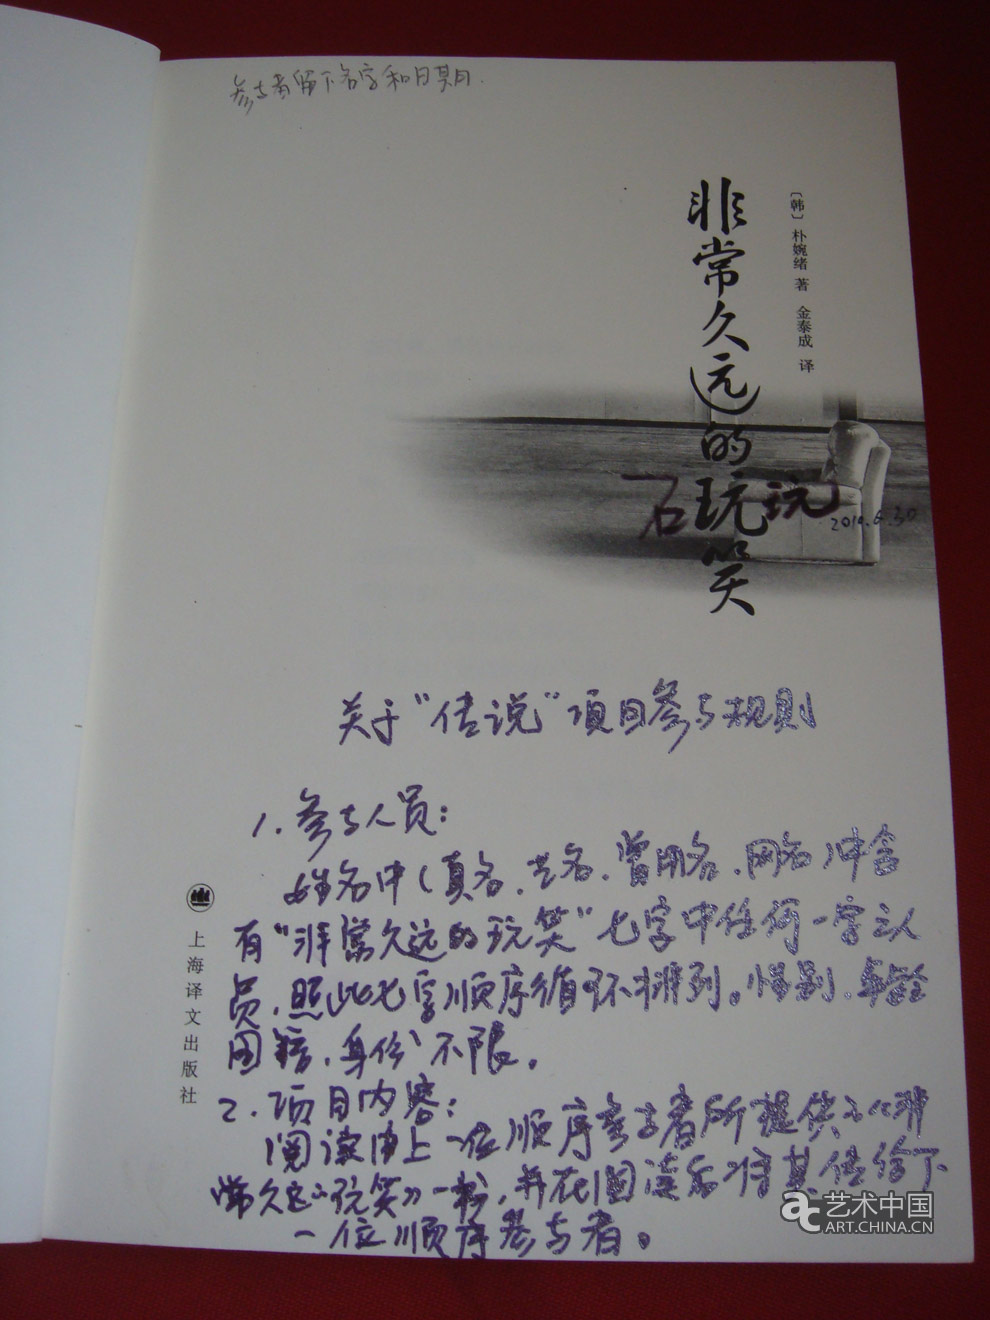 参与者留下名字和日期.
〔韩〕朴婉绪 著 金泰成 译
非常久远的玩笑
石玩玩
2010.6.30
关于“传说”项目参与规则
1. 参与人员：
姓名中（真名、艺名、曾用名、网名）中含
有“非常久远的玩笑”七字中任何一字之人
员，照此七字顺序循环排列。性别、年龄
国籍、身份不限。
2. 项目内容：
阅读由上一位顺序参与者所提供之《非
常久远的玩笑》一书，并在阅读后将其传给下
一位顺序参与者。
上海译文出版社
艺术中国
ART.CHINA.CN